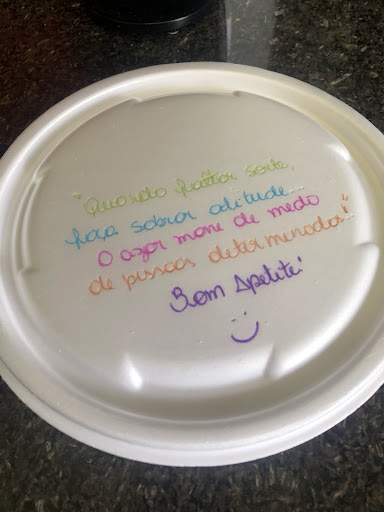 "Quando faltar sorte,
faça sobrar atitude...
O azar morre de medo
de pessoas determinadas!"
Bom Apetite!
:)